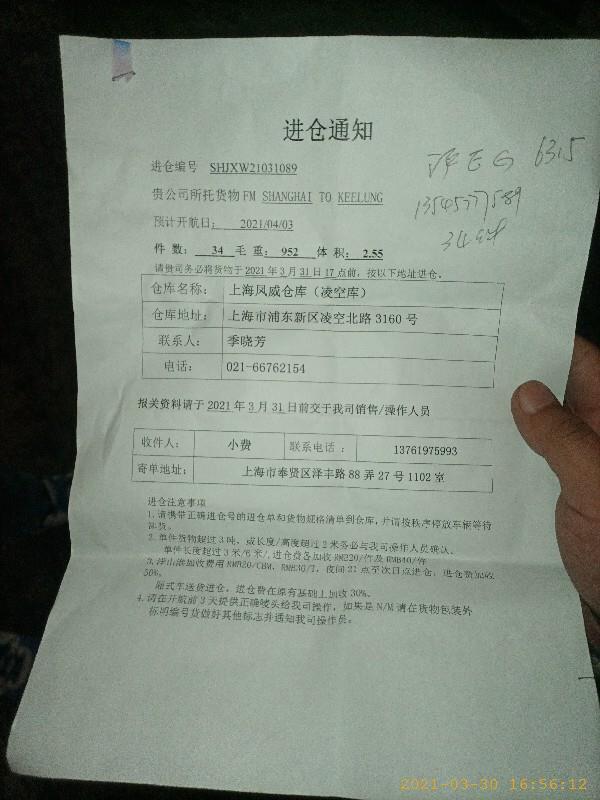 进仓通知
进仓编号 SHJXW21031089
沪EG 6315
贵公司所托货物FM SHANGHAI TO KEELUNG
13545777589
预计开航日： 2021/04/03
34
件 数： 34 毛 重： 952 体 积： 2.55
请贵司务必将货物于2021年3月31日17点前，按以下地址进仓。
仓库名称： 上海风威仓库（凌空库）
仓库地址： 上海市浦东新区凌空北路3160号
联系人： 季晓芳
电话： 021-66762154
报关资料请于2021年3月31日前交于我司销售/操作人员
收件人： 小费 联系电话： 13761975993
寄单地址： 上海市奉贤区泽丰路88弄27号1102室
进仓注意事项
1.请携带正确进仓号的进仓单和货物规格清单到仓库，并请按秩序停放车辆等待
卸货。
2.单件货物超过3吨，或长度/高度超过2米务必与我司操作人员确认。
单件长度超过3米/6米/，进仓费各加收RMB220/件及RMB440/件
3.洋山港加收费用RMB20/CBM，RMB30/T，夜间21点至次日点进仓，进仓费加收
50%。
厢式车送货进仓，进仓费在原有基础上加收30%。
4.请在开航前3天提供正确唛头给我司操作，如果是N/M请在货物包装外
标明编号货做好其他标志并通知我司操作员。
2021-03-30 16:56:12